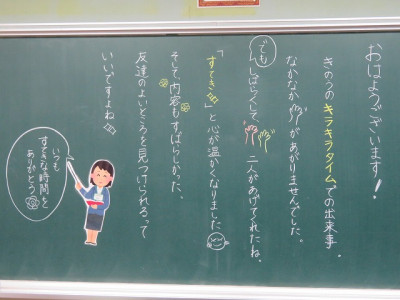 おはようございます！
きのうのキラキラタイムでの出来事。
なかなか
があがりませんでした。
でも
しばらくして、
二人があげてくれたね。
「すてき」と心が温かくなりました
そして、内容もすばらしかった。
友達のよいところを見つけられるって
いいですよね
いつも
すてきな時間を
ありがとう